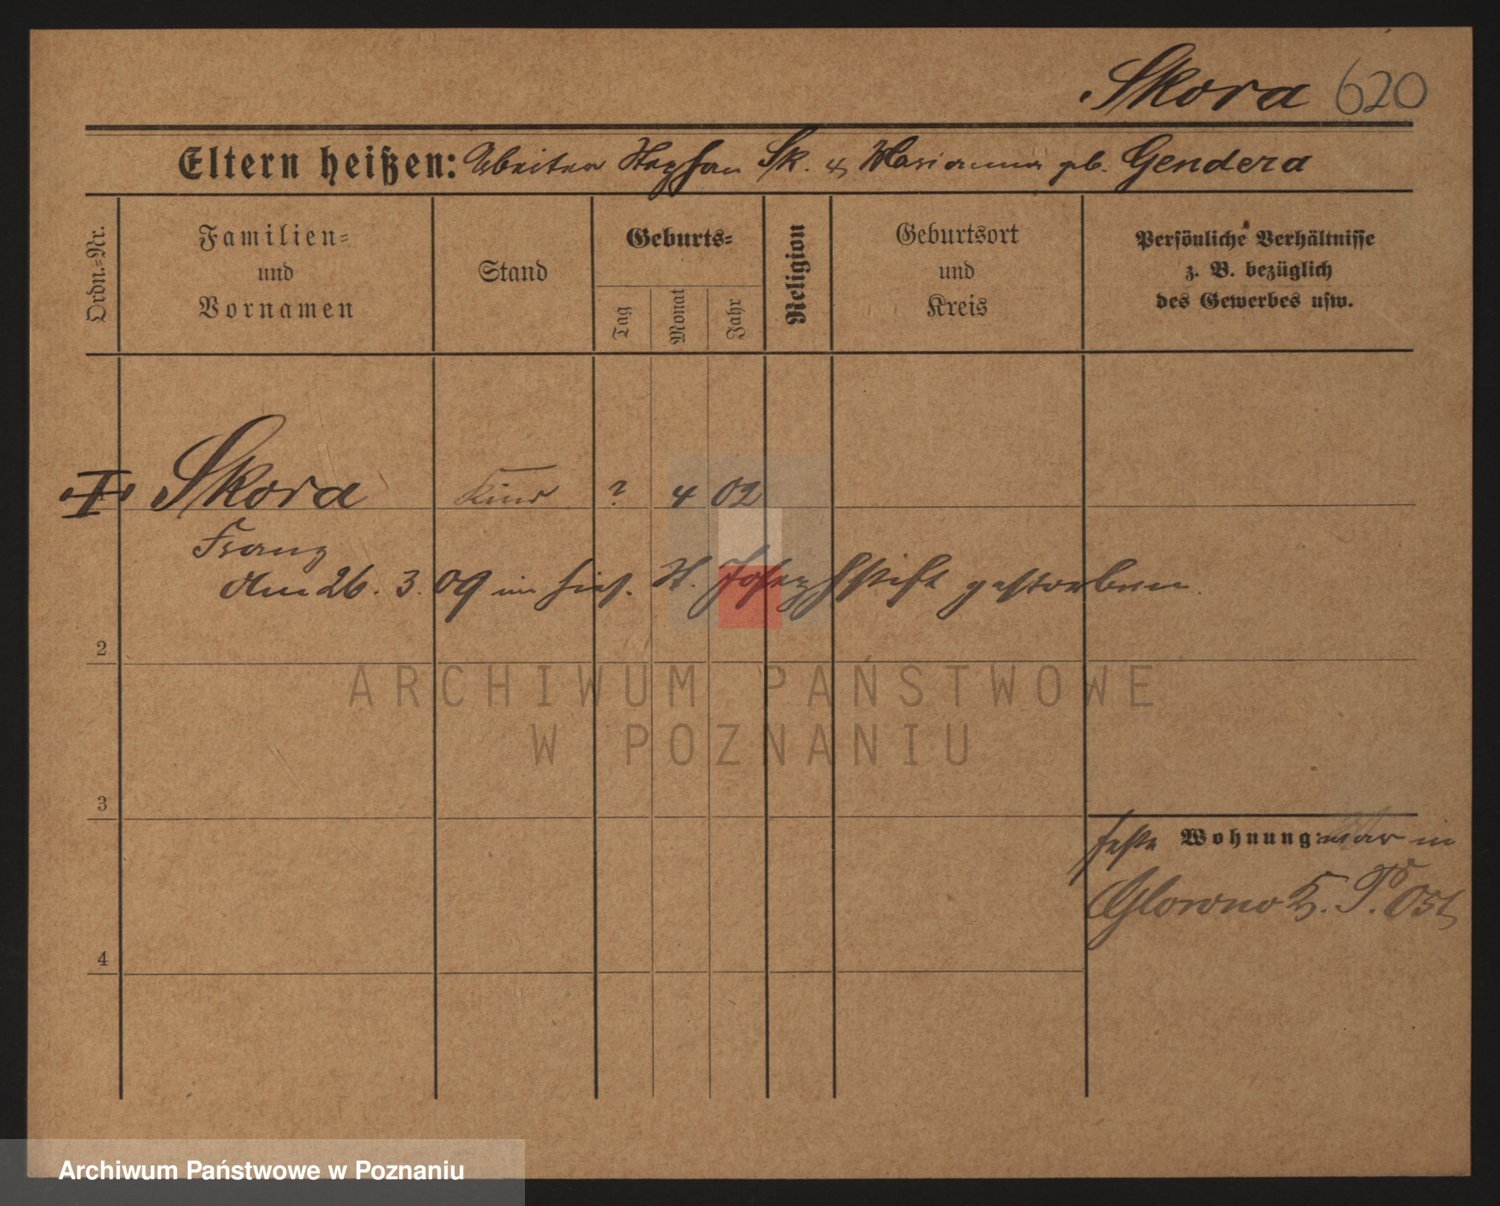 Skora 620
Eltern heißen: Arbeiter Stephan Sk. & Marianna geb. Gendera
Ordn.=Nr.
Familien=
und
Vornamen
Stand
Geburts=
Tag
Monat
Jahr
Religion
Geburtsort
und
Kreis
Persönliche Verhältnisse
z. B. bezüglich
des Gewerbes usw.
I Skora Kind ? 4 02
Franz
Am 26. 3. 09 im hies. St. Josephstift gestorben.
2
ARCHIWUM PAŃSTWOWE
W POZNANIU
3
feste Wohnung: war in
Glowno K. P. Ost
4
Archiwum Państwowe w Poznaniu